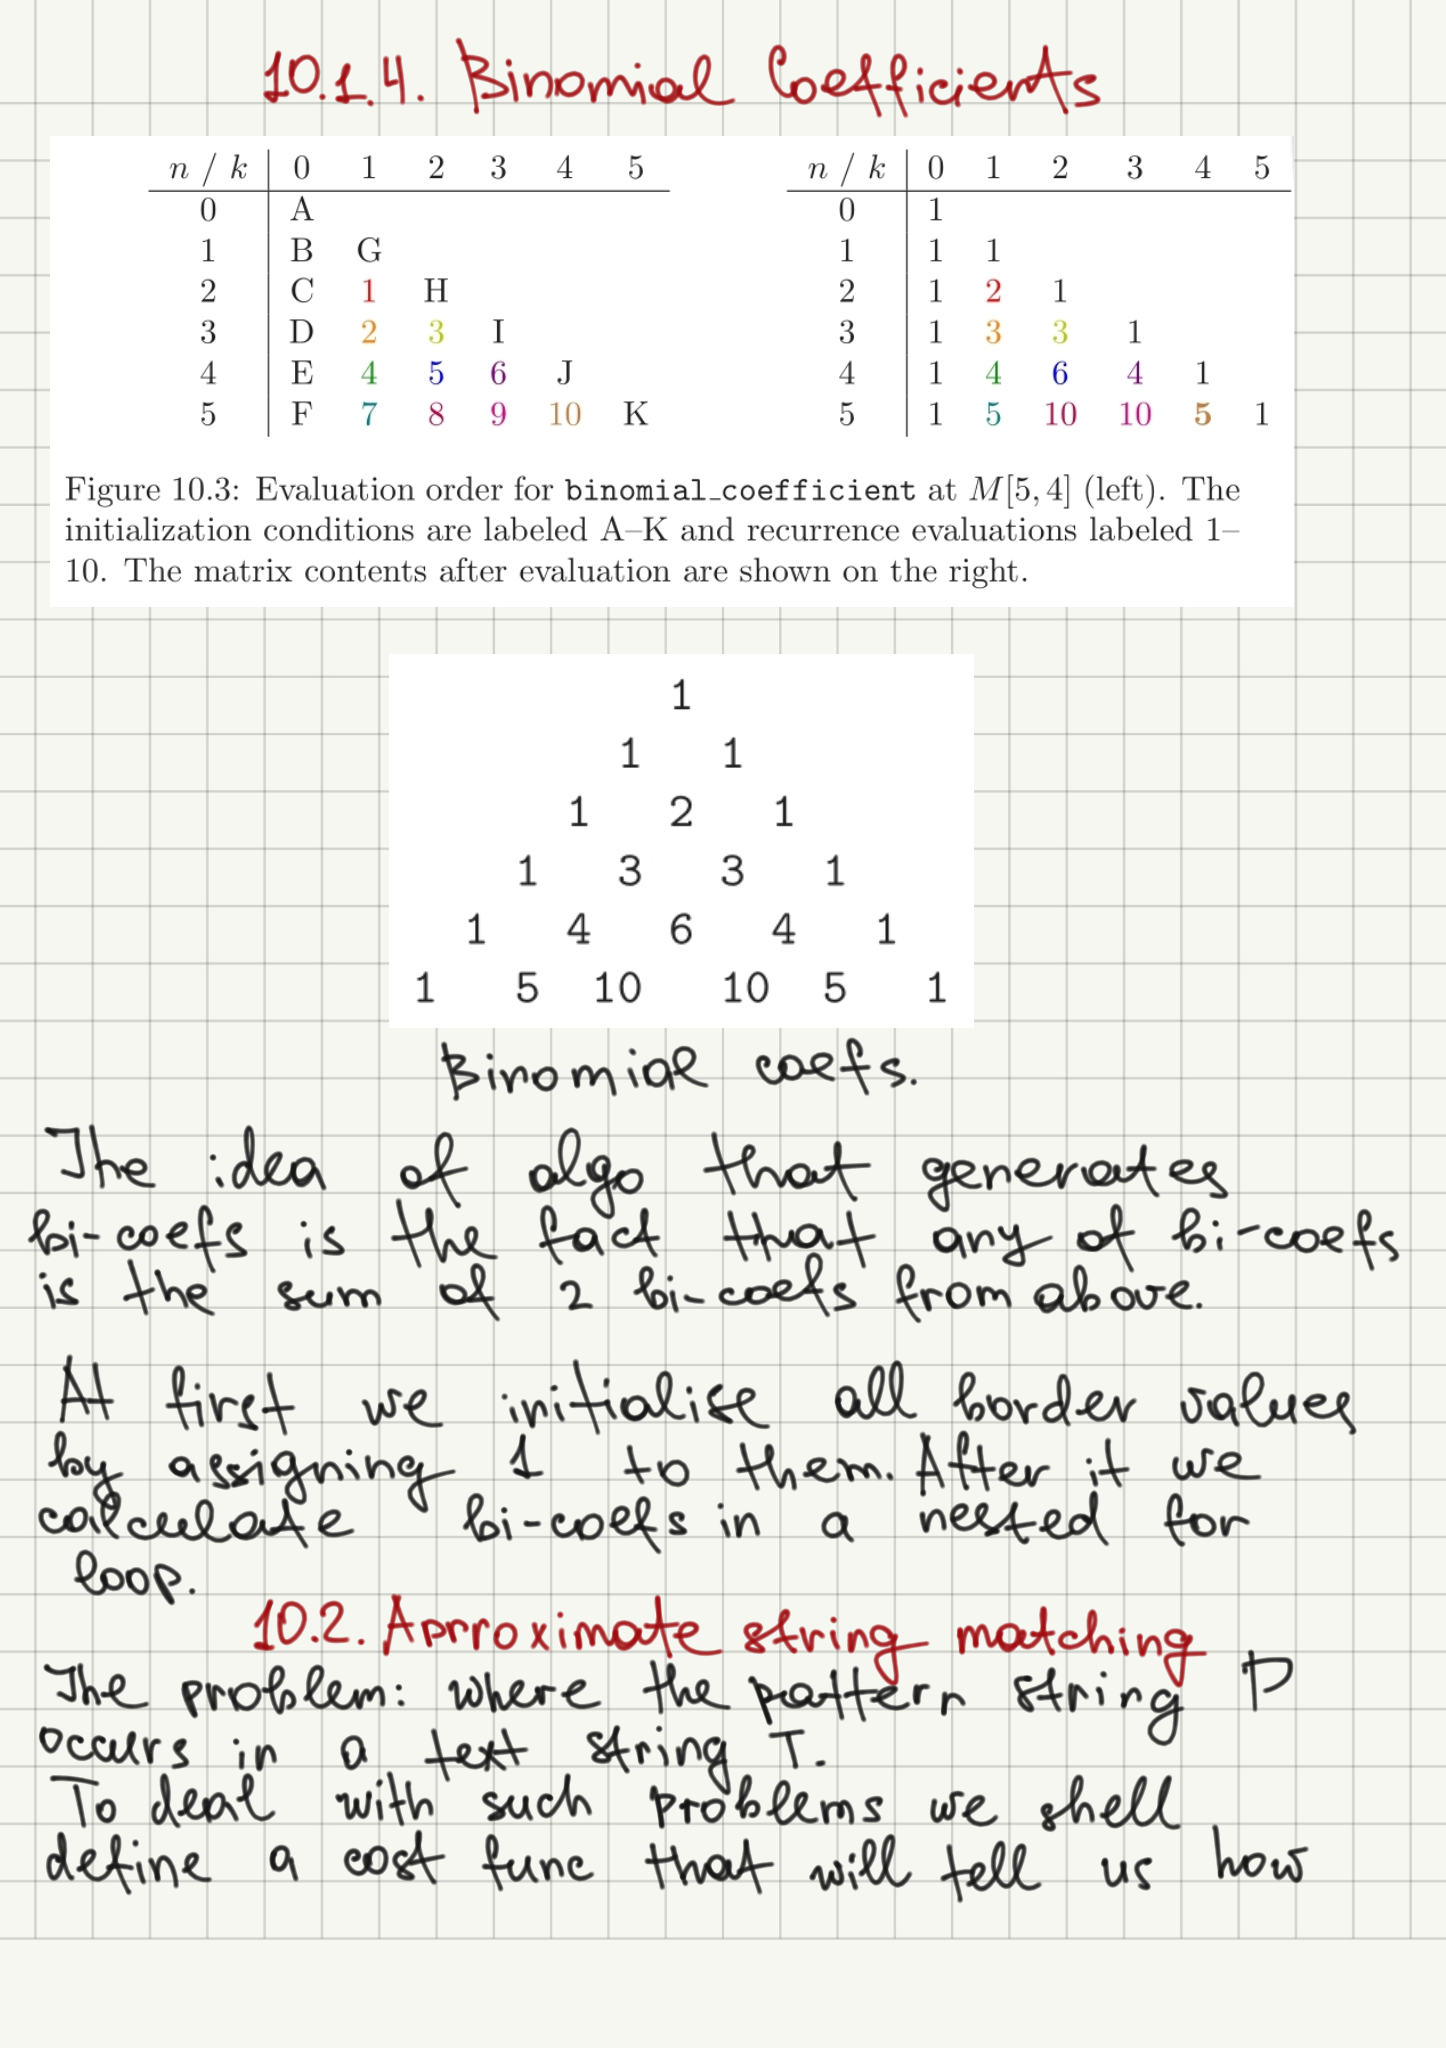 10.1.4. Binomial Coefficients
n / k 0 1 2 3 4 5
0 A
1 B G
2 C 1 H
3 D 2 3 I
4 E 4 5 6 J
5 F 7 8 9 10 K
n / k 0 1 2 3 4 5
0 1
1 1 1
2 1 2 1
3 1 3 3 1
4 1 4 6 4 1
5 1 5 10 10 5 1
Figure 10.3: Evaluation order for binomial_coefficient at M[5, 4] (left). The
initialization conditions are labeled A–K and recurrence evaluations labeled 1–
10. The matrix contents after evaluation are shown on the right.
1
1 1
1 2 1
1 3 3 1
1 4 6 4 1
1 5 10 10 5 1
Binomial coefs.
The idea of algo that generates
bi-coefs is the fact that any of bi-coefs
is the sum of 2 bi-coefs from above.
At first we initialise all border values
by assigning 1 to them. After it we
calculate bi-coefs in a nested for
loop.
10.2. Approximate string matching
The problem: where the pattern string P
occurs in a text string T.
To deal with such problems we shell
define a cost func that will tell us how